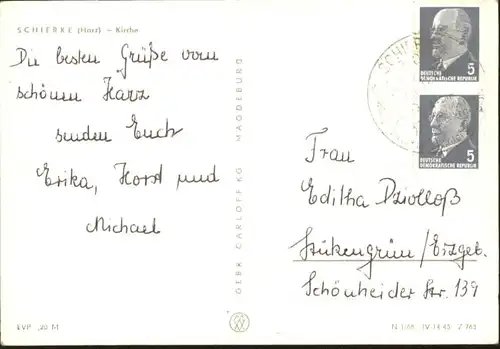 SCHIERKE (Harz) – Kirche
Die besten Grüße vom
schönen Harz
senden Euch
Erika, Horst und
Michael
EVP -,20 M
GEBR. GARLOFF KG MAGDEBURG
5
DEUTSCHE
DEMOKRATISCHE REPUBLIK
5
DEUTSCHE
DEMOKRATISCHE REPUBLIK
Frau
Editha Dziolloß
Stützengrün/Erzgeb.
Schönheider Str. 139
IV-14-45